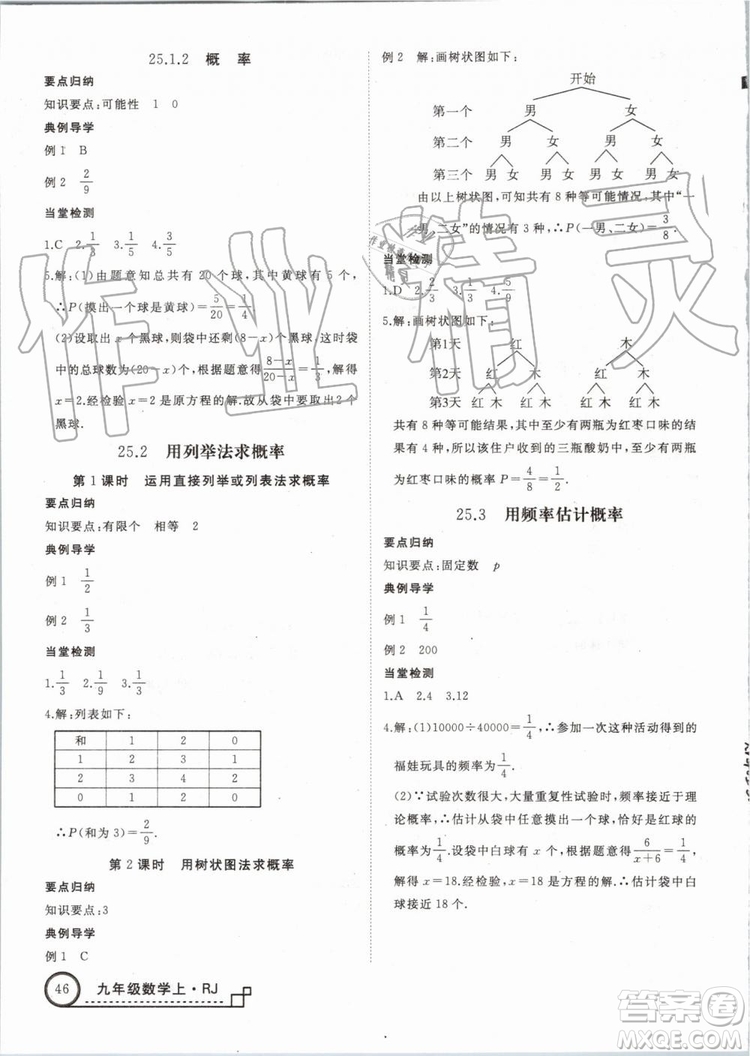 25.1.2 概 率
要点归纳
知识要点:可能性 1 0
典例导学
例1 B
例2 2/9
当堂检测
1.C 2.1/3 3.1/5
5.解:(1)由题意知总共有20个球,其中黄球有5个,
∴P(摸出一个球是黄球)=5/20=1/4.
(2)设取出了x个黑球,则袋中还剩(8-x)个黑球,这时袋中
的总球数为(20-x)个.根据题意得(8-x)/(20-x)=1/3.解得
x=2.经检验x=2是原方程的解.故从袋中要取出2个
黑球.
25.2 用列举法求概率
第1课时 运用直接列举或列表法求概率
要点归纳
知识要点:有限个 相等 2
典例导学
例1 1/2
例2 1/3
当堂检测
1.1/3 2.1/9 3.1/6
4.解:列表如下:
和 1 2 0
1 2 3 1
2 3 4 2
0 1 2 0
∴P(和为3)=2/9.
第2课时 用树状图法求概率
要点归纳
知识要点:3
典例导学
例1 C
46 九年级数学上·RJ
例2 解:画树状图如下:
开始
第一个 男 女
第二个 男 女 男 女
第三个 男 女 男 女 男 女 男 女
由以上树状图,可知共有8种等可能情况,其中“一
男、二女”的情况有3种,∴P(一男、二女)=3/8.
当堂检测
1.D 2.2/3
5.解:画树状图如下:
第1天 红 木
第2天 红 木 红 木
第3天 红 木 红 木 红 木 红 木
共有8种等可能结果,其中至少有两瓶为红枣口味的结果
有4种,所以该住户收到的三瓶酸奶中,至少有两瓶为
红枣口味的概率P=4/8=1/2.
25.3 用频率估计概率
要点归纳
知识要点:固定数 p
典例导学
例1 1/4
例2 200
当堂检测
1.A 2.4 3.12
4.解:(1)10000÷40000=1/4,∴参加一次这种活动得到的
福娃玩具的频率为1/4.
(2)∵试验次数很大,大量重复性试验时,频率接近于理
论概率,∴估计从袋中任意摸出一个球,恰好是红球的
概率为1/4.设袋中白球有x个.根据题意得6/(x+6)=1/4.
解得x=18.经检验,x=18是方程的解.∴估计袋中白
球接近18个.
作业精灵
答案圈
MXQE.COM